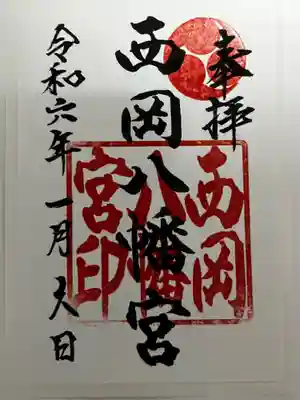 奉拝
西岡八幡宮
令和六年一月大日
西岡
八幡
宮印